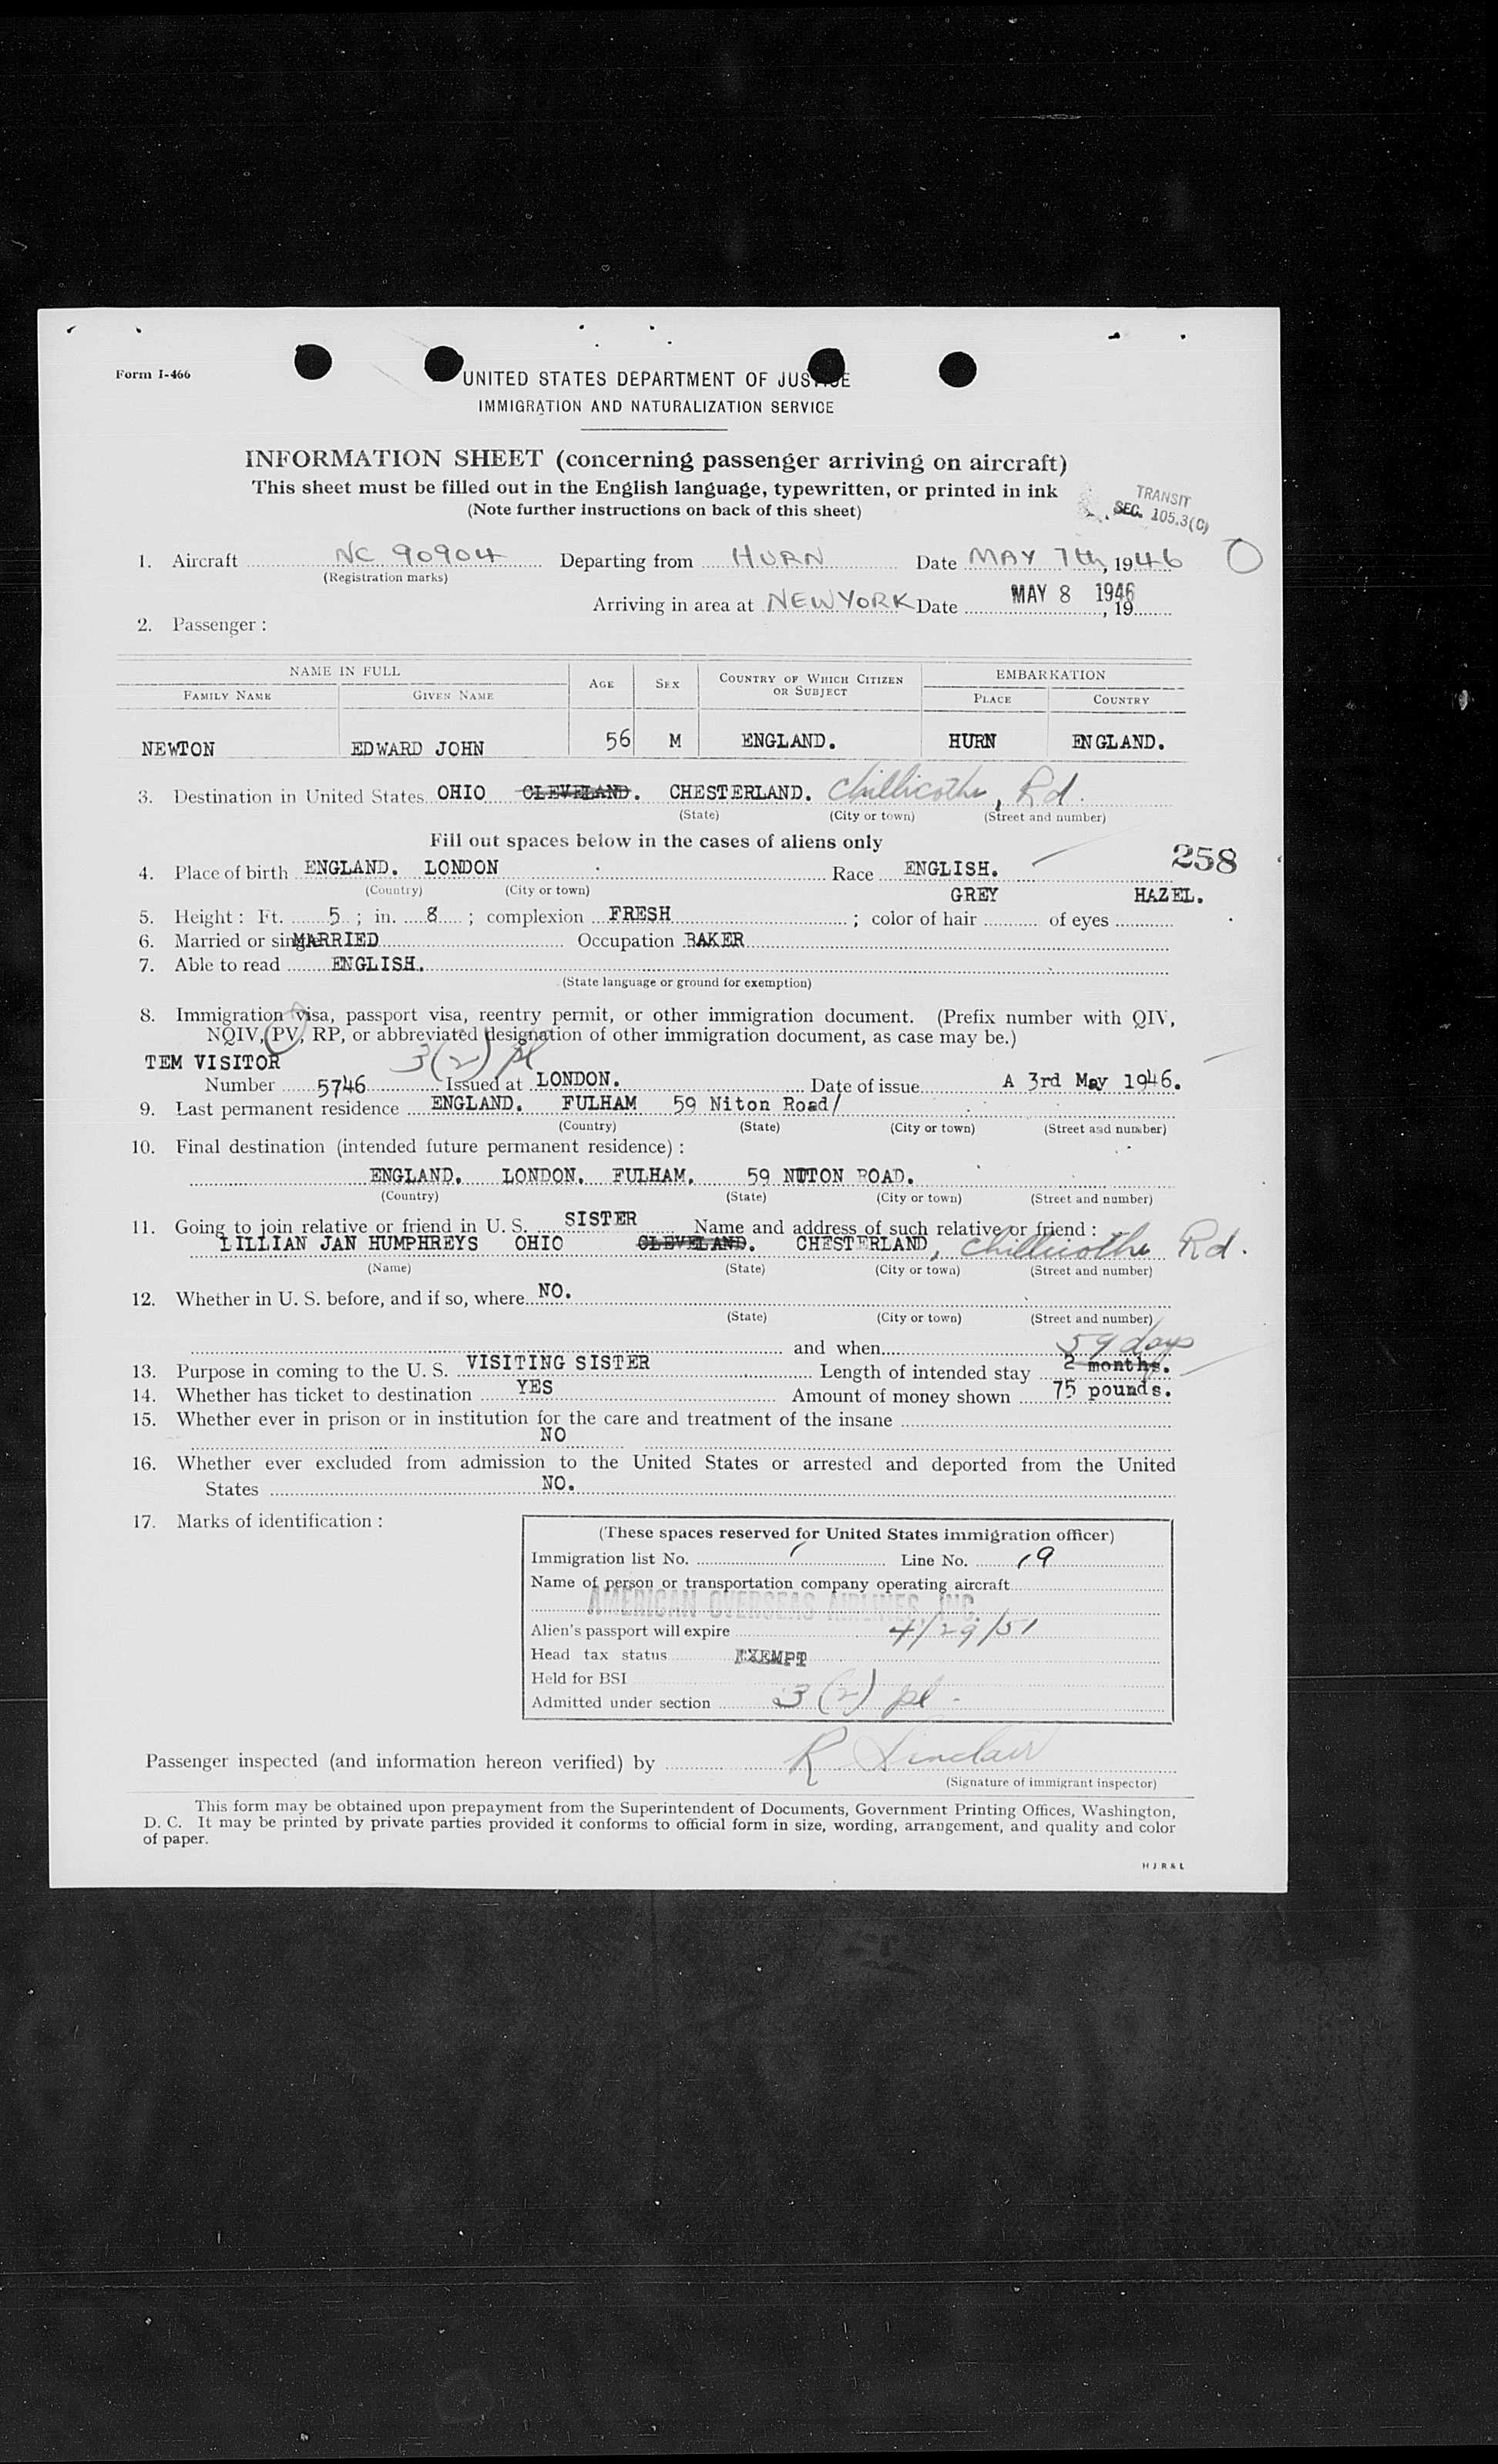 Form I-466
UNITED STATES DEPARTMENT OF JUSTICE
IMMIGRATION AND NATURALIZATION SERVICE
INFORMATION SHEET (concerning passenger arriving on aircraft)
This sheet must be filled out in the English language, typewritten, or printed in ink
(Note further instructions on back of this sheet)
TRANSIT
SEC. 105.3(C)
1. Aircraft NC 90904 Departing from HURN Date MAY 7th, 1946
(Registration marks)
Arriving in area at NEW YORK Date MAY 8 1946, 19
2. Passenger :
NAME IN FULL AGE SEX COUNTRY OF WHICH CITIZEN OR SUBJECT EMBARKATION
FAMILY NAME GIVEN NAME PLACE COUNTRY
NEWTON EDWARD JOHN 56 M ENGLAND. HURN ENGLAND.
3. Destination in United States OHIO CLEVELAND. CHESTERLAND. Chillicothe, Rd.
(State) (City or town) (Street and number)
Fill out spaces below in the cases of aliens only
258
4. Place of birth ENGLAND. LONDON Race ENGLISH.
(Country) (City or town)
5. Height : Ft. 5 ; in. 8 ; complexion FRESH ; color of hair GREY of eyes HAZEL.
6. Married or single MARRIED Occupation BAKER
7. Able to read ENGLISH.
(State language or ground for exemption)
8. Immigration visa, passport visa, reentry permit, or other immigration document. (Prefix number with QIV,
NQIV, PV, RP, or abbreviated designation of other immigration document, as case may be.)
TEM VISITOR 3(2) pl
Number 5746 Issued at LONDON. Date of issue A 3rd May 1946.
9. Last permanent residence ENGLAND. FULHAM 59 Niton Road/
(Country) (State) (City or town) (Street and number)
10. Final destination (intended future permanent residence) :
ENGLAND. LONDON. FULHAM. 59 NITON ROAD.
(Country) (State) (City or town) (Street and number)
11. Going to join relative or friend in U. S. SISTER Name and address of such relative or friend :
LILLIAN JAN HUMPHREYS OHIO CLEVELAND. CHESTERLAND, Chillicothe Rd.
(Name) (State) (City or town) (Street and number)
12. Whether in U. S. before, and if so, where NO.
(State) (City or town) (Street and number)
and when
59 days
13. Purpose in coming to the U. S. VISITING SISTER Length of intended stay 2 months.
14. Whether has ticket to destination YES Amount of money shown 75 pounds.
15. Whether ever in prison or in institution for the care and treatment of the insane
NO
16. Whether ever excluded from admission to the United States or arrested and deported from the United
States NO.
17. Marks of identification :
(These spaces reserved for United States immigration officer)
Immigration list No. 1 Line No. 19
Name of person or transportation company operating aircraft
AMERICAN OVERSEAS AIRLINES, INC.
Alien's passport will expire 4/29/51
Head tax status EXEMPT
Held for BSI
Admitted under section 3(2) pl -
Passenger inspected (and information hereon verified) by R Sinclair
(Signature of immigrant inspector)
This form may be obtained upon prepayment from the Superintendent of Documents, Government Printing Offices, Washington,
D. C. It may be printed by private parties provided it conforms to official form in size, wording, arrangement, and quality and color
of paper.
H J R & L